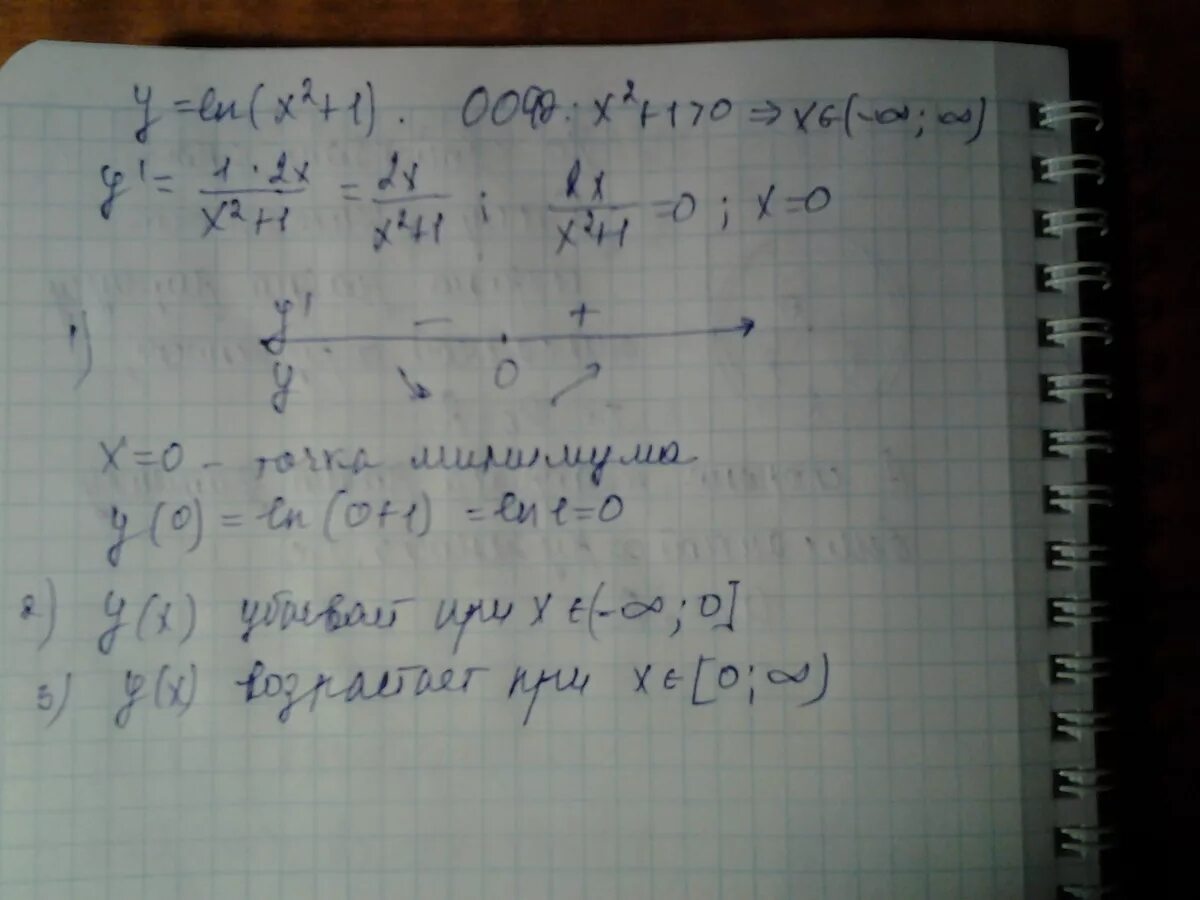 y = ln(x²+1). ООФ: x²+1>0 ⇒ x∈(-∞; ∞)
y' = 1·2x/x²+1 = 2x/x²+1 ; 2x/x²+1 = 0 ; x=0
1) y' − +
y ↘ 0 ↗
x=0 - точка минимума
y(0) = ln(0+1) = ln1=0
2) y(x) убывает при x∈(-∞; 0]
3) y(x) возрастает при x∈[0; ∞)